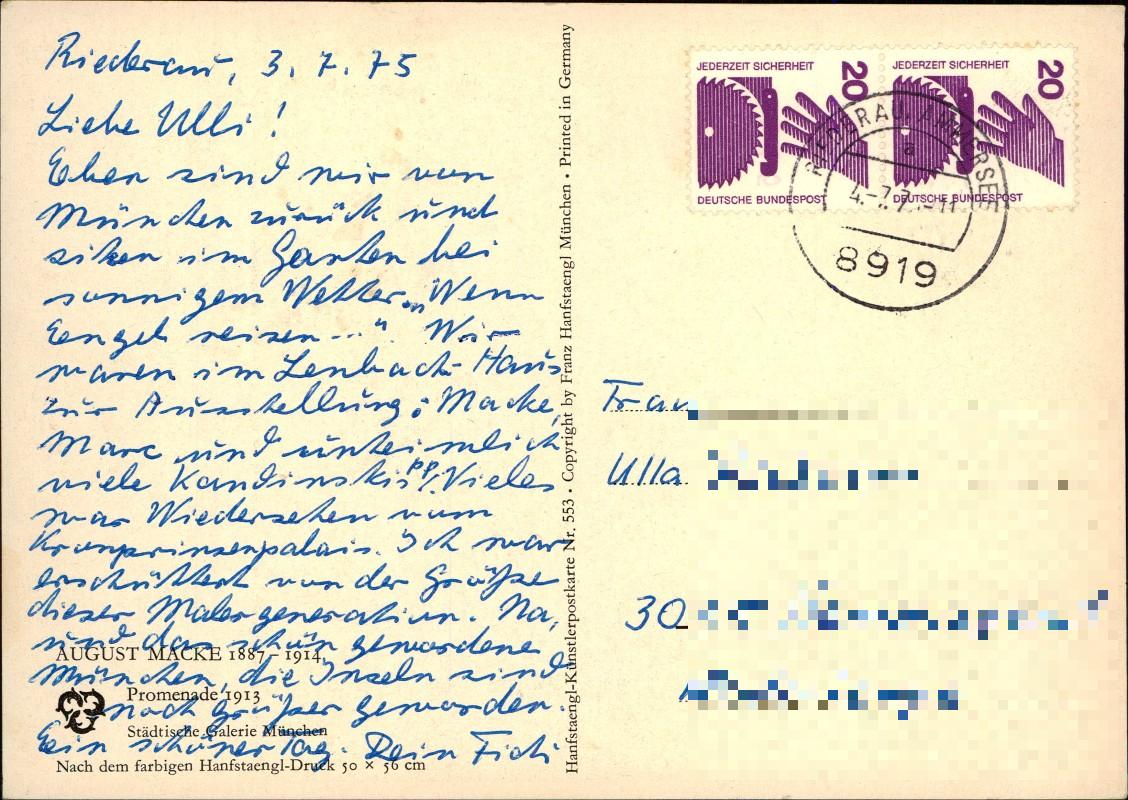 Riederau, 3. 7. 75
Liebe Ulli!
Eben sind wir von
München zurück und
sitzen im Garten bei
sonnigem Wetter. „Wenn
Engel reisen ..." Wir
waren im Lenbach-Haus
zur Ausstellung: Macke,
Marc und unheimlich
viele Kandinskis pp! Vieles
war Wiedersehen vom
Kronprinzenpalais. Ich war
erschüttert von der Größe
dieser Malergeneration. Na,
und das schön gewordene
München, die Inseln sind
noch größer geworden.
Ein schöner Tag. Dein Fidi
AUGUST MACKE 1887–1914
Promenade 1913
Städtische Galerie München
Nach dem farbigen Hanfstaengl-Druck 50 × 56 cm
Hanfstaengl-Künstlerpostkarte Nr. 553 • Copyright by Franz Hanfstaengl München • Printed in Germany
JEDERZEIT SICHERHEIT
20
DEUTSCHE BUNDESPOST
JEDERZEIT SICHERHEIT
20
DEUTSCHE BUNDESPOST
RIEDERAU, AMMERSEE
a
4.-7.7 -11
8919
Frau
Ulla
30